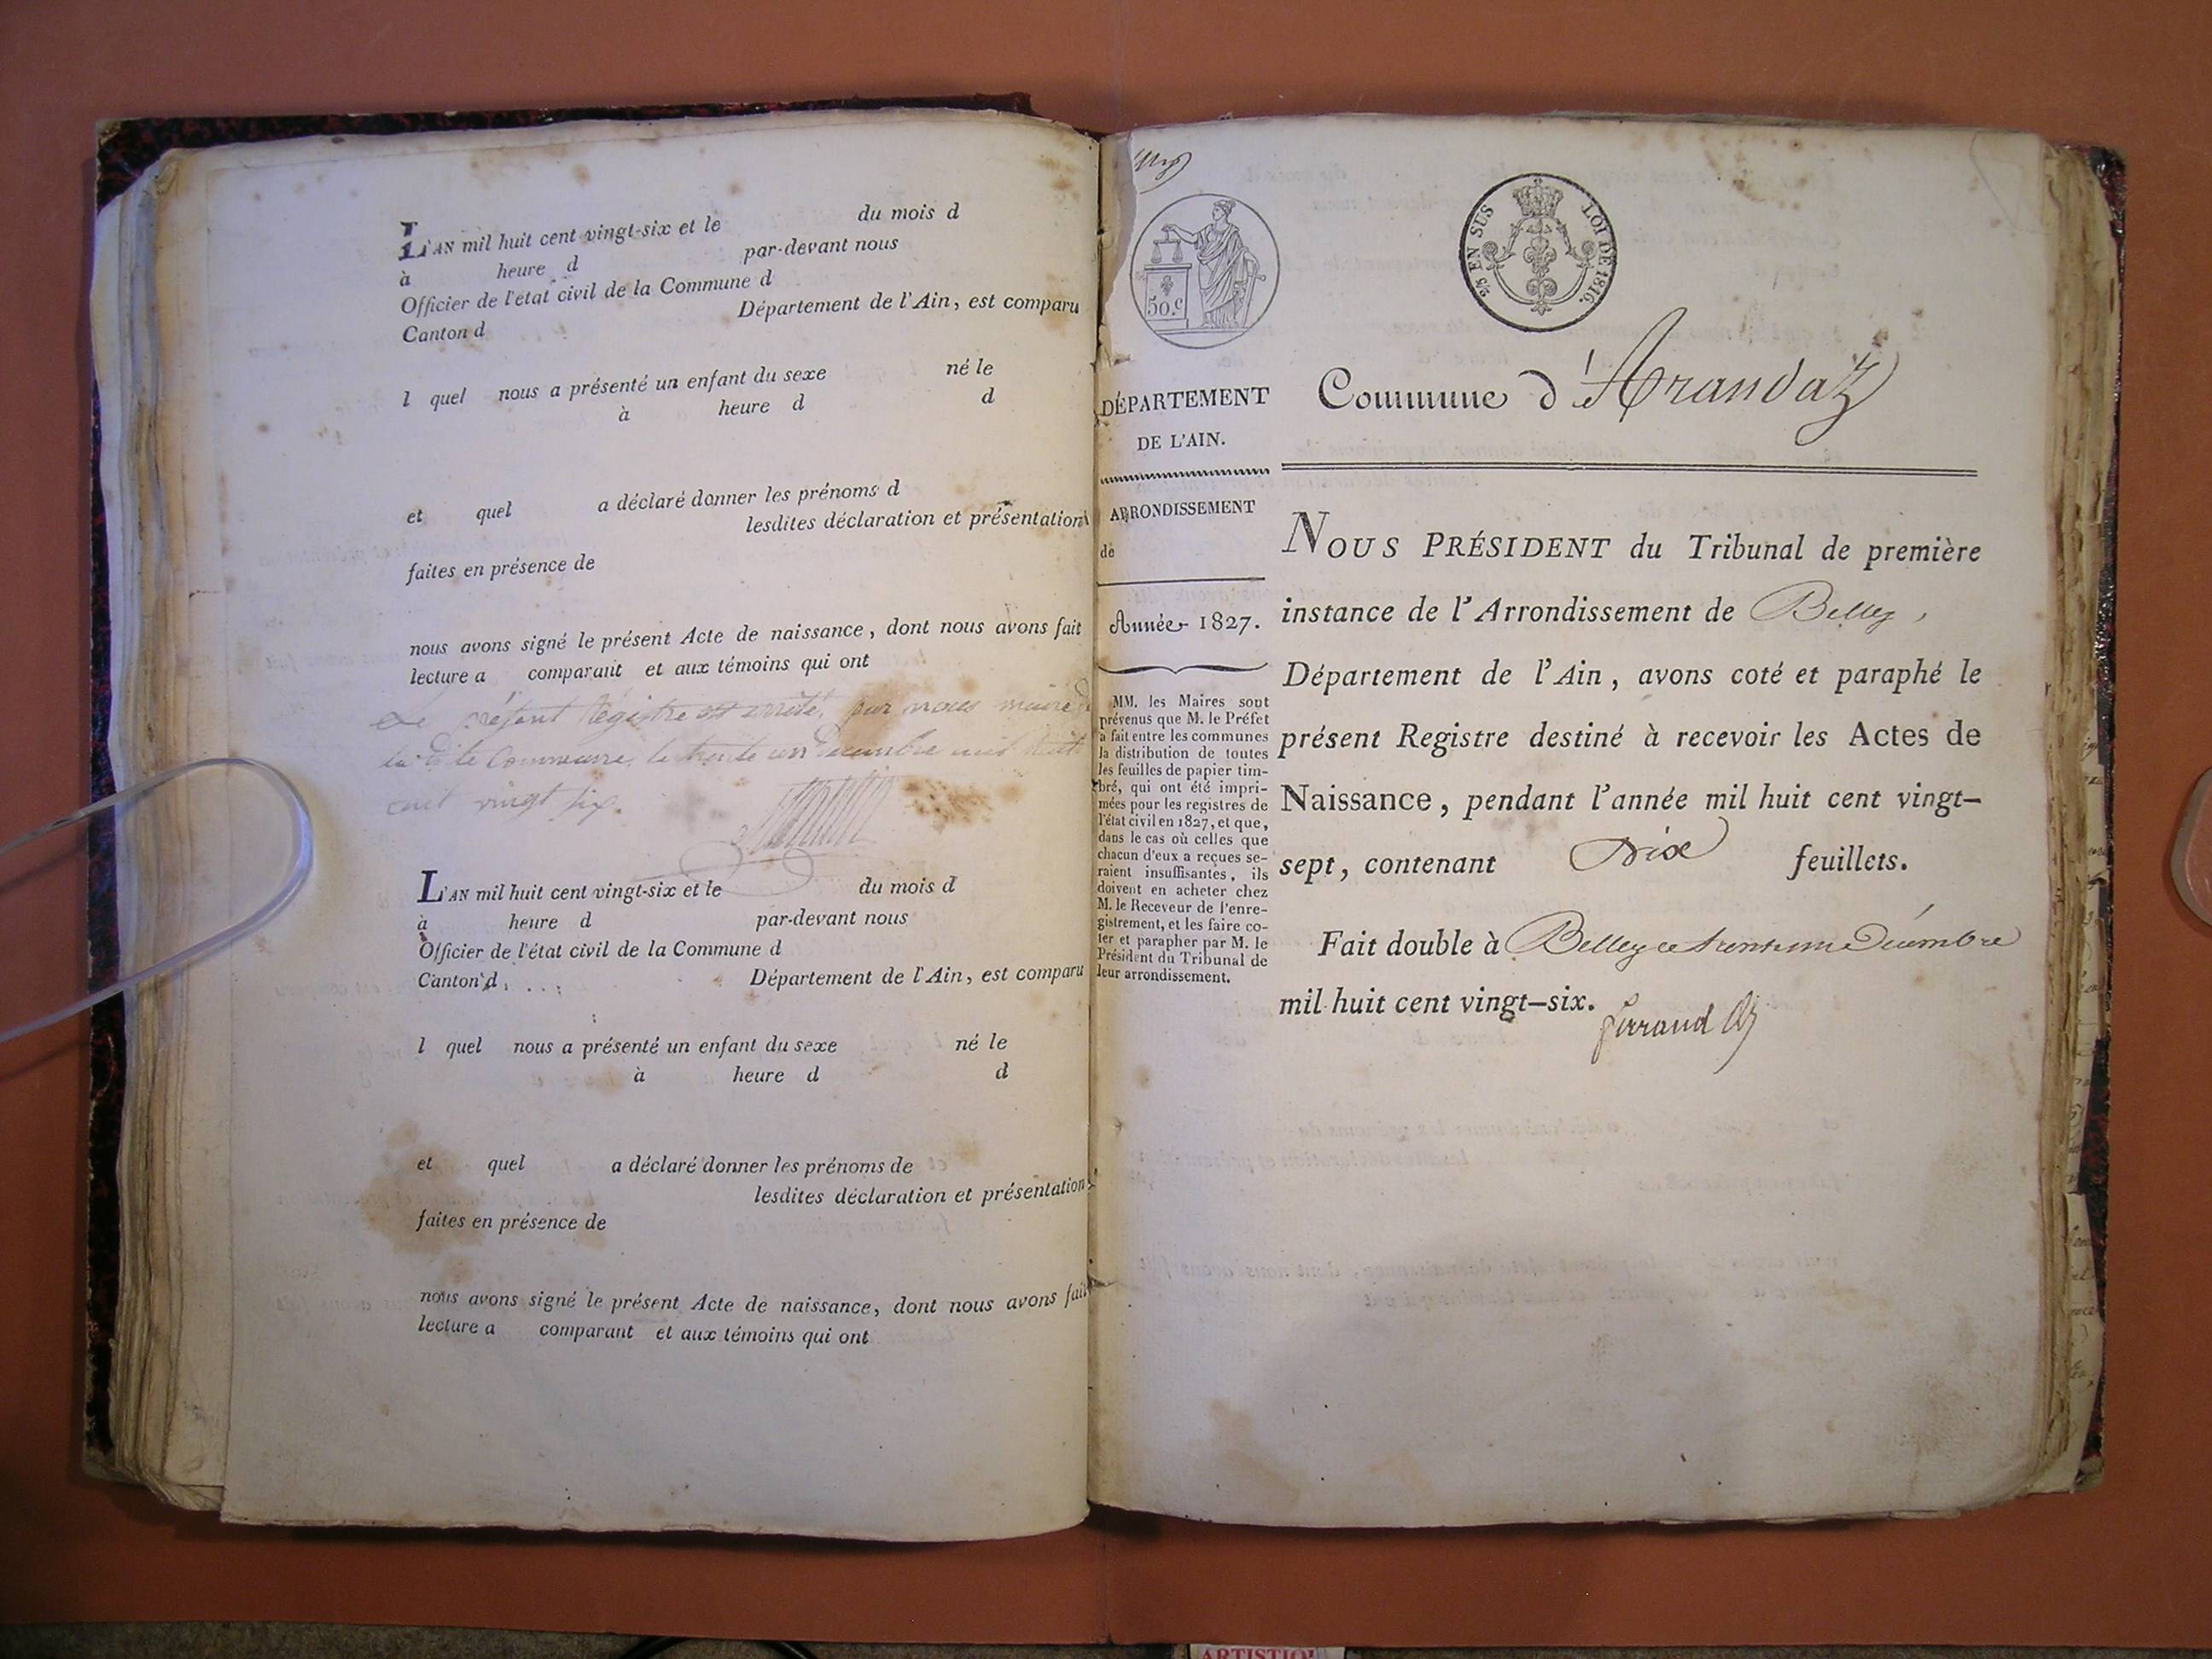 L'AN mil huit cent vingt-six et le du mois d
à heure d par-devant nous
Officier de l'état civil de la Commune d
Canton d Département de l'Ain, est comparu
l quel nous a présenté un enfant du sexe né le
à heure d d
et quel a déclaré donner les prénoms d
lesdites déclaration et présentation
faites en présence de
nous avons signé le présent Acte de naissance, dont nous avons fait
lecture a comparant et aux témoins qui ont
Le présent Régistre est arrêté, par nous maire d
la dite Commune, le trente un Decembre mil huit
cent vingt six.
L'AN mil huit cent vingt-six et le du mois d
à heure d par-devant nous
Officier de l'état civil de la Commune d
Canton d Département de l'Ain, est comparu
l quel nous a présenté un enfant du sexe né le
à heure d d
et quel a déclaré donner les prénoms de
lesdites déclaration et présentation
faites en présence de
nous avons signé le présent Acte de naissance, dont nous avons fait
lecture a comparant et aux témoins qui ont
50.c
25 EN SUS LOI DE 1816.
DÉPARTEMENT
DE L'AIN.
ARRONDISSEMENT
de
Année 1827.
MM. les Maires sont
prévenus que M. le Préfet
a fait entre les communes
la distribution de toutes
les feuilles de papier tim-
bré, qui ont été impri-
mées pour les registres de
l'état civil en 1827, et que,
dans le cas où celles que
chacun d'eux a reçues se-
raient insuffisantes, ils
doivent en acheter chez
M. le Receveur de l'enre-
gistrement, et les faire co-
ter et parapher par M. le
Président du Tribunal de
leur arrondissement.
Commune d'Arandaz
NOUS PRÉSIDENT du Tribunal de première
instance de l'Arrondissement de Belley,
Département de l'Ain, avons coté et paraphé le
présent Registre destiné à recevoir les Actes de
Naissance, pendant l'année mil huit cent vingt-
sept, contenant Dix feuillets.
Fait double à Belley ce trente un Décembre
mil huit cent vingt-six.
ARTISTIQU